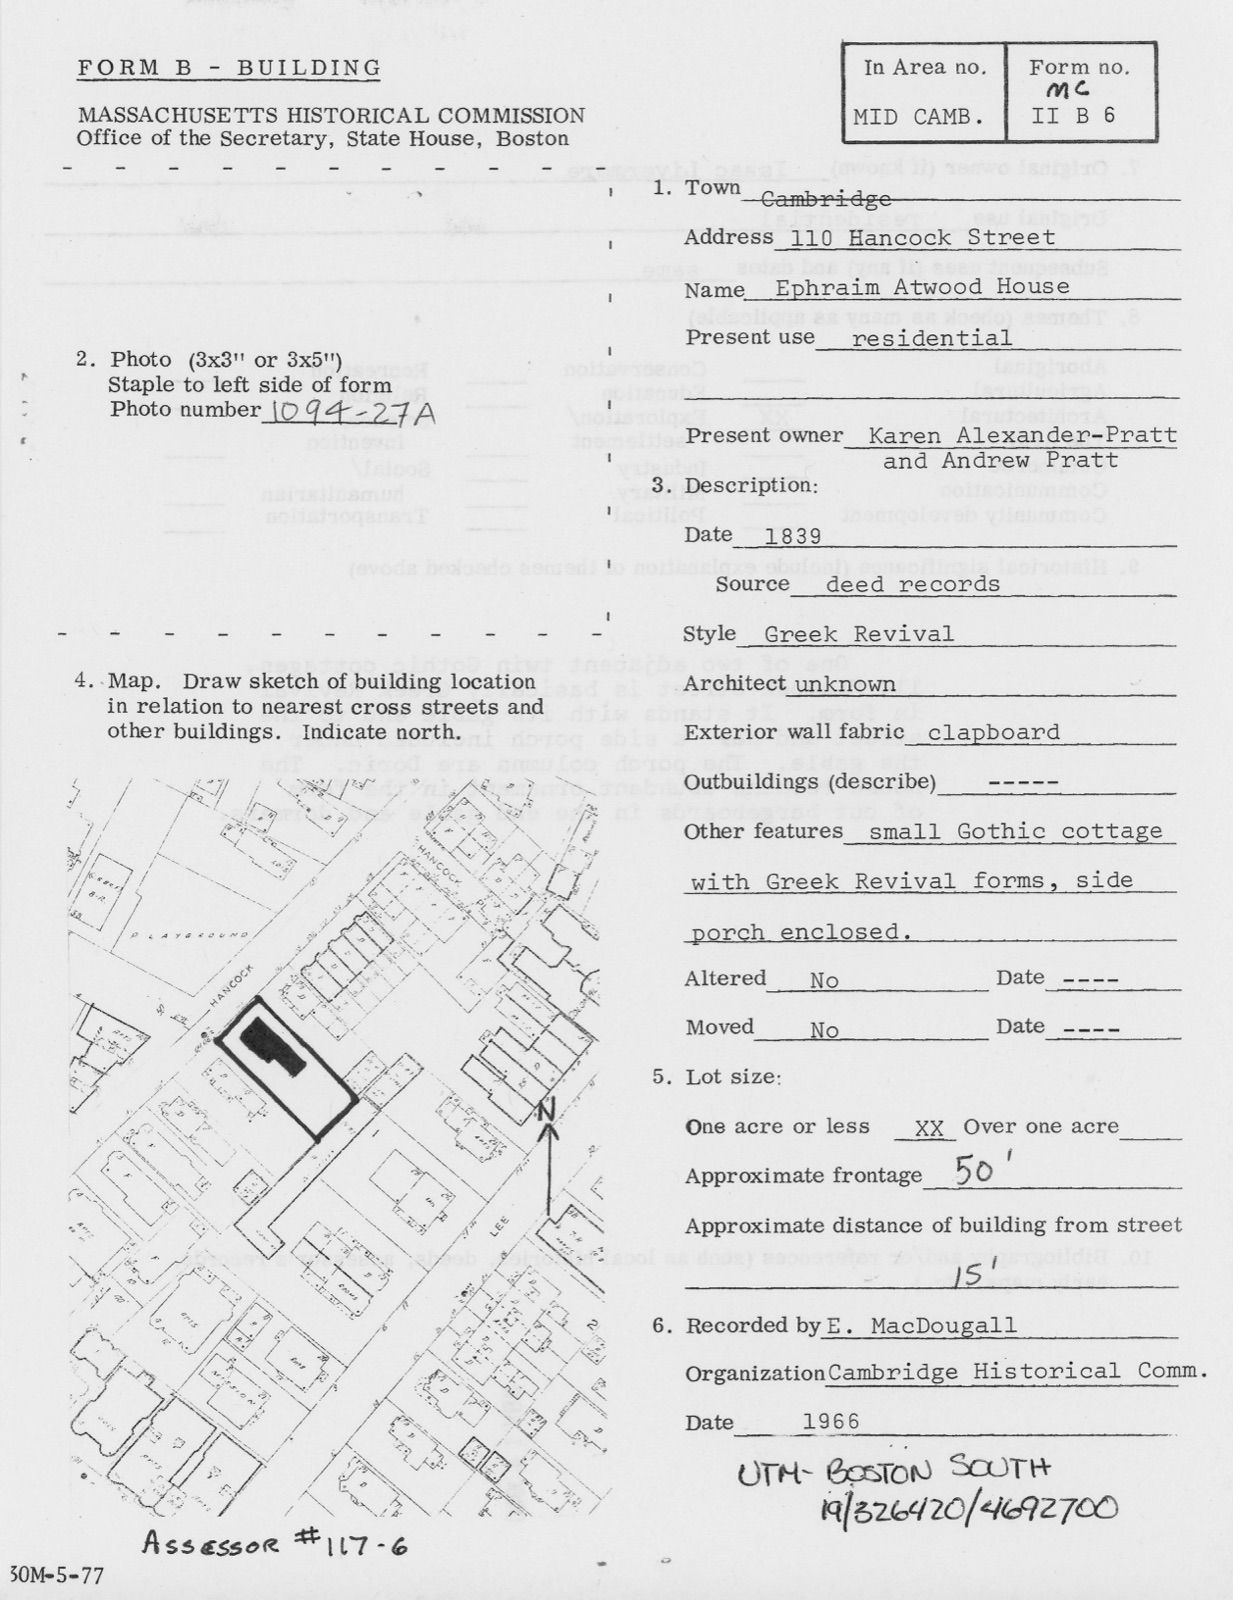 FORM B - BUILDING
In Area no.
MID CAMB.
Form no.
MC
II B 6
MASSACHUSETTS HISTORICAL COMMISSION
Office of the Secretary, State House, Boston
1. Town Cambridge
Address 110 Hancock Street
Name Ephraim Atwood House
Present use residential
Present owner Karen Alexander-Pratt
and Andrew Pratt
2. Photo (3x3" or 3x5")
Staple to left side of form
Photo number 1094-27A
3. Description:
Date 1839
Source deed records
Style Greek Revival
Architect unknown
Exterior wall fabric clapboard
Outbuildings (describe) -----
Other features small Gothic cottage
with Greek Revival forms, side
porch enclosed.
Altered No Date ----
Moved No Date ----
4. Map. Draw sketch of building location
in relation to nearest cross streets and
other buildings. Indicate north.
HANCOCK
PLAYGROUND
HANCOCK
St
N
LEE
MANSION
5. Lot size:
One acre or less XX Over one acre
Approximate frontage 50'
Approximate distance of building from street
15'
6. Recorded by E. MacDougall
Organization Cambridge Historical Comm.
Date 1966
UTM- BOSTON SOUTH
19/326420/4692700
ASSESSOR #117-6
30M-5-77